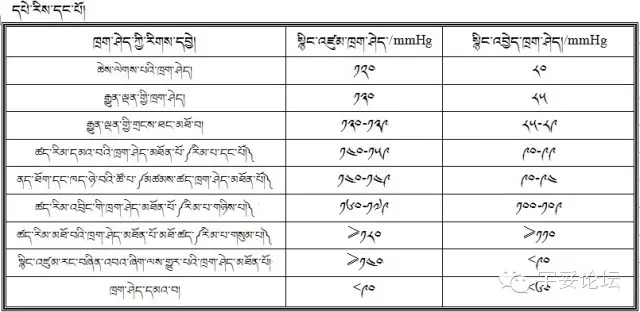 དཔེ་རིས་དང་པོ།
ཁྲག་ཤེད་ཀྱི་རིགས་དབྱེ། སྙིང་འཛུམ་ཁྲག་ཤེད་/mmHg སྙིང་འབྱེད་ཁྲག་ཤེད།/mmHg
ཆེས་ལེགས་པའི་ཁྲག་ཤེད། ༡༢༠ ༨༠
རྒྱུན་ལྡན་གྱི་ཁྲག་ཤེད། ༡༣༠ ༨༥
རྒྱུན་ལྡན་གྱི་གྲངས་ཐང་མཐོ་བ། ༡༣༠-༡༣༩ ༨༥-༨༩
ཚད་རིམ་དམའ་བའི་ཁྲག་ཤེད་མཐོན་པོ་༼རིམ་པ་དང་པོ།༽ ༡༤༠-༡༥༩ ༩༠-༩༩
ནད་ཐོག་དང་ཁད་ཉེ་བའི་ཚོ་པ་༼མཚམས་ཚད་ཁྲག་ཤེད་མཐོན་པོ།༽ ༡༤༠-༡༤༩ ༩༠-༩༤
ཚད་རིམ་འབྲིང་གི་ཁྲག་ཤེད་མཐོན་པོ་༼རིམ་པ་གཉིས་པ།༽ ༡༦༠-༡༧༩ ༡༠༠-༡༠༩
ཚད་རིམ་མཐོ་བའི་ཁྲག་ཤེད་མཐོན་པོ་མཐོ་ཚད་༼རིམ་པ་གསུམ་པ།༽ ≥༡༨༠ ≥༡༡༠
སྙིང་འཛུམ་རང་བཞིན་འབའ་ཞིག་ལས་གྱུར་པའི་ཁྲག་ཤེད་མཐོན་པོ། ≥༡༤༠ <༩༠
ཁྲག་ཤེད་དམའ་བ། <༩༠ <༦༠
宇妥论坛